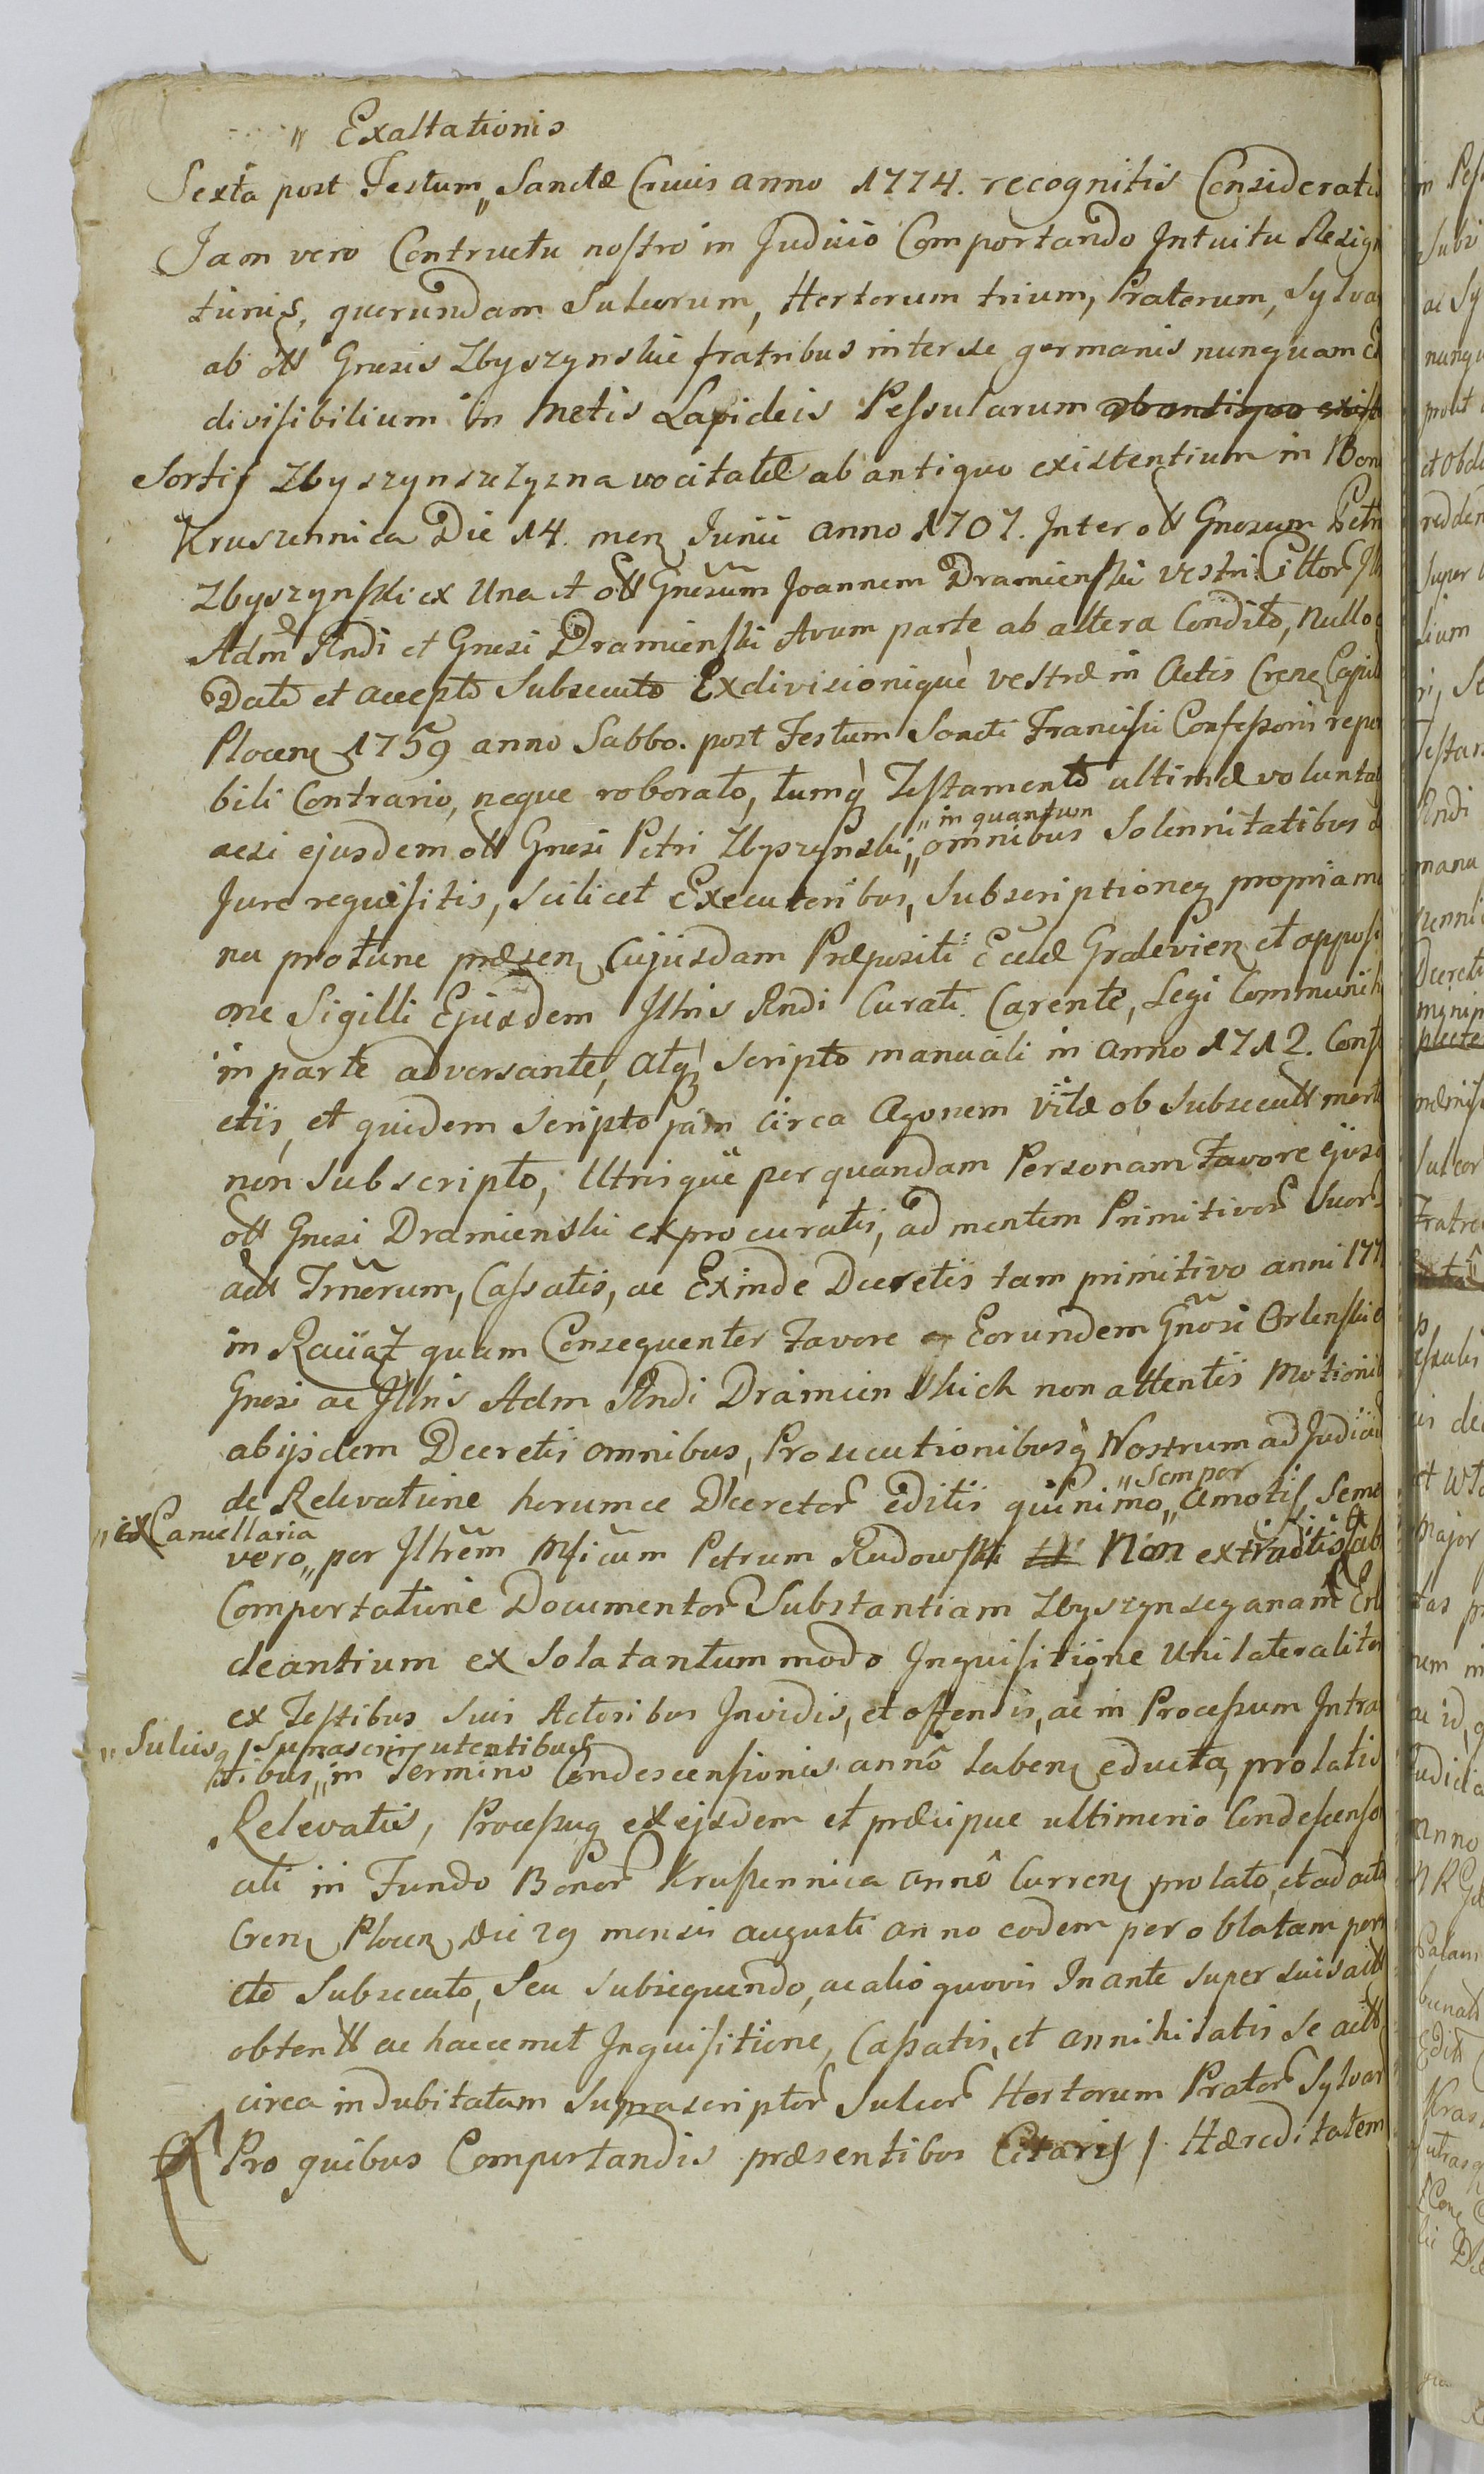 " Exaltationis
Sexta post Festum " Sanctæ Crucis anno 1774. recognitis Consideratis
Jam vero Contractu nostro in Judicio Comportando Intuitu Resign
tionis, quorundam Sulcorum, Hortorum trium, Pratorum, Sylva
ab oll Gnesis Zbyszynskie fratribus inter se germanis nunquam
divisibilium in Metis Lapideis Pessularum ab antiquo exist
Sortis Zbyszynszczyzna vocitatæ ab antiquo existentium in Bon
Kruszennica Die 14. menz Junii anno 1707. Inter oll Gnesum Petr
Zbyszynski ex Una et oll Gnesum Joannem Dramienski vestri Cittor Ill
Adm Rndi et Gnesi Dramienski Avum parte ab altera Condito, Nullo
Dato et accepto Subsecuto Exdivisionique vestræ in Actis Crenz Capit
Plocenz 1759 anno Sabbo. post Festum Sancti Francisci Confessoris repor
bili Contrario, neque roborato, tumq Testamento ultimæ volunta
acsi ejusdem oll Gnesi Petri Zbyszynski " in quantum omnibus Solennitatibus d
Jure requisitis, scilicet Executoribus, Subscriptioneq propria ma
nu protunc præsenz Cujusdam Præpositi Ecclæ Gralevienz et apposi
one Sigilli Ejusdem Illris Rndi Curati Carente, Legi Communi
in parte adversante, atq Scripto manuali in anno 1712. Conf
ctis, et quidem Scripto jam circa Agonem Vitæ ob Subsecutt mort
non Subscripto, Utrisque per quandam Personam Favore ejusd
oll Gnesi Dramienski exprocuratis, ad mentem Primitivor Suor
act Trnorum, Cassatis, ac Exinde Decretis tam primitivo anni 177
in Raciąż quam Consequenter Favore Eorundem Gnosi Orlenski
Gnesi ac Illris Adm Rndi Dramienskich non attentis Motioni
ab ijsdem Decretis omnibus, Prosecutionibusq Nostrum ad Judici
de Relevatione horumce Decretor editis quinimo " Semper amotis, Seme
" ex Cancellaria
vero " per Illrem Mficum Petrum Rudowski Non extraditis ab
Comportatione Documentor Substantiam Zbyszynscyanam
deantium ex Sola tantum modo Inquisitione Unilateraliter
ex Testibus Suis Actoribus Invidis, et offensis, ac in Processum Intra
" Sulcisq Suprascrip utentibus
tibus " in Termino Condescensionis anno labenz educta, prolatis
Relevatis, Processuq ex ejsdem et præcipue ultimario Condescenso
ali in Fundo Bonor Kruszennica anno Currenz prolato, et ad acta
Crenz Plocenz Die 29 mensis augusti anno eodem per oblatam porr
cto Subsecuto, Seu Subsequendo, ac alio quovis Inante super suis actt
obtentt ac haecemet Inquisitione, Cassatis, et annihilatis se actt
circa indubitatam Suprascriptor Sulcor Hortorum Prator Sylvar
Pro quibus Comportandis præsentibus Citaris / Hæreditatem